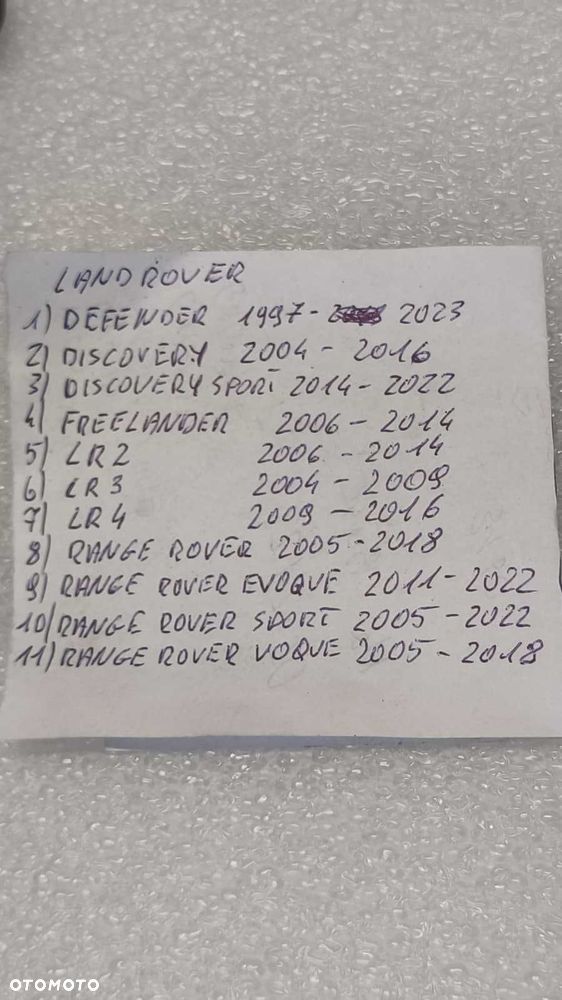 LAND ROVER
1) DEFENDER 1997- 2023
2) DISCOVERY 2004 - 2016
3) DISCOVERY SPORT 2014- 2022
4) FREELANDER 2006 - 2014
5) LR2 2006 - 2014
6) LR3 2004 - 2009
7) LR4 2009 - 2016
8) RANGE ROVER 2005-2018
9) RANGE ROVER EVOQUE 2011-2022
10) RANGE ROVER SPORT 2005-2022
11) RANGE ROVER VOQUE 2005-2018
OTOMOTO